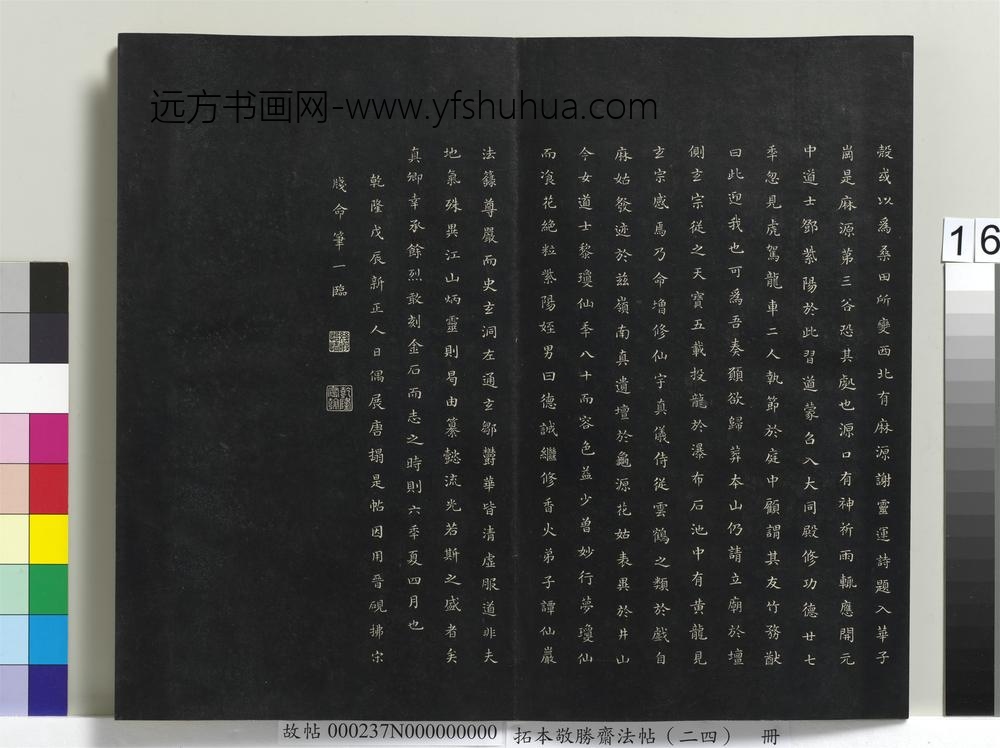 远方书画网-www.yfshuhua.com
殼或以為桑田所變西北有麻源謝靈運詩題入華子
崗是麻源第三谷恐其處也源口有神祈雨輒應開元
中道士鄧紫陽於此習道蒙召入大同殿修功德廿七
年忽見虎駕龍車二人執節於庭中顧謂其友竹務猷
曰此迎我也可為吾奏願欲歸葬本山仍請立廟於壇
側玄宗從之天寶五載投龍於瀑布石池中有黃龍見
玄宗感焉乃命增修仙宇真儀侍從雲鶴之類於戲自
麻姑發迹於茲嶺南真遺壇於龜源花姑表異於井山
今女道士黎瓊仙年八十而容色益少曾妙行夢瓊仙
而飡花絕粒紫陽姪男曰德誠繼修香火弟子譚仙巖
法籙尊嚴而史玄洞左通玄鄒鬱華皆清虛服道非夫
地氣殊異江山炳靈則曷由纂懿流光若斯之盛者矣
真卿幸承餘烈敢刻金石而志之時則六年夏四月也
乾隆戊辰新正人日偶展唐搨是帖因用晉硯拂宋
牋命筆一臨
故帖 000237N000000000
拓本敬勝齋法帖（二四） 冊
16